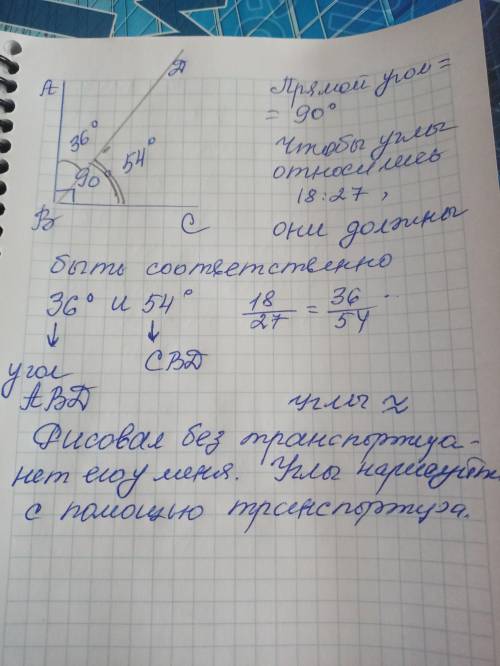 A
D
36°
54°
90
B
C
Прямой угол =
= 90°
Чтобы углы
относились
18:27,
они должны
быть соответственно
36° и 54°
18/27 = 36/54
↓ ↓
угол CBD
ABD
углы
Рисовал без транспортира-
нет его у меня. Углы нарисуйте
с помощью транспортира.